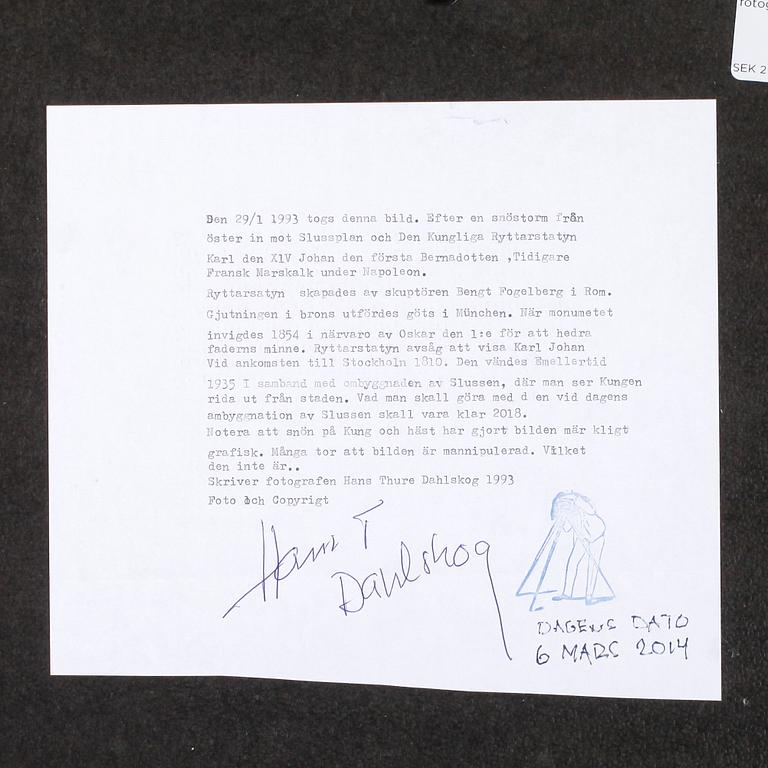 fotog
SEK 2
Den 29/1 1993 togs denna bild. Efter en snöstorm från
öster in mot Slussplan och Den Kungliga Ryttarstatyn
Karl den XlV Johan den första Bernadotten ,Tidigare
Fransk Marskalk under Napoleon.
Ryttarsatyn skapades av skuptören Bengt Fogelberg i Rom.
Gjutningen i brons utfördes göts i München. När monumetet
invigdes 1854 i närvaro av Oskar den 1:e för att hedra
faderns minne. Ryttarstatyn avsåg att visa Karl Johan
Vid ankomsten till Stockholn 1810. Den vändes Emellertid
1935 I samband med ombyggnaden av Slussen, där man ser Kungen
rida ut från staden. Vad man skall göra med d en vid dagens
ambyggnation av Slussen skall vara klar 2018.
Notera att snön på Kung och häst har gjort bilden mär kligt
grafisk. Många tor att bilden är mannipulerad. Vilket
den inte är..
Skriver fotografen Hans Thure Dahlskog 1993
Foto och Copyrigt
Hans T
Dahlskog
DAGENS DATO
6 MARS 2014